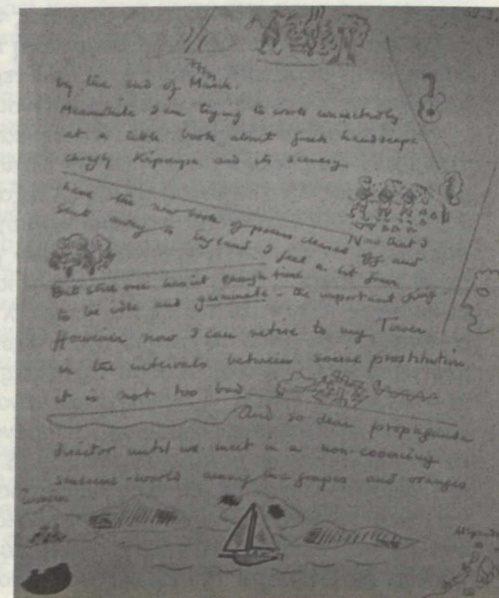 by the end of March.
Meanwhile I am trying to work unconnectedly
at a little book about Greek landscape
chiefly and its scenery.
Now that I
have the new book of poems cleared off and
sent away to England I feel a bit freer
But still one hasn't enough time
to be idle and germinate - the important thing
However now I can retire to my Tower
in the intervals between social prostitution
it is not too bad.
And so dear propaganda
director until we meet in a non-cooning
world among the grapes and oranges